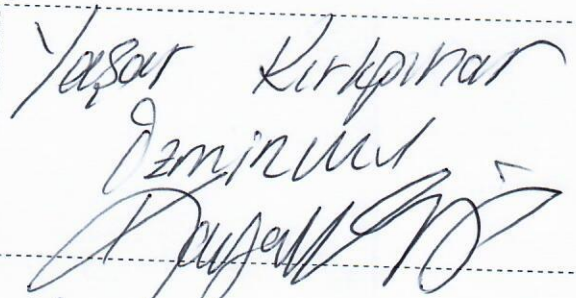 Yaşar Kırkpınar
İzmir MV